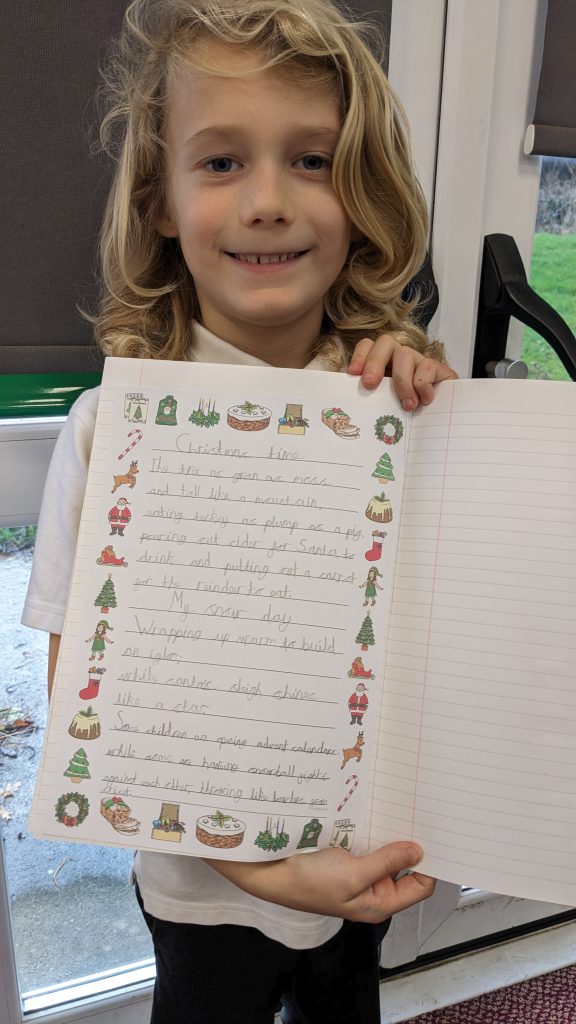 Christmas time
The tree as green as moss
and tall like a mountain,
eating turkey as plump as a pig,
pouring out cider for Santa to
drink and putting out a carrot
for the reindoor to eat.
My snow day
Wrapping up warm to build
an igloo,
while santas sleigh shines
like a star
Some children are opening advent calendars
while some are having snowball fights
against each other, throwing like bowlers from